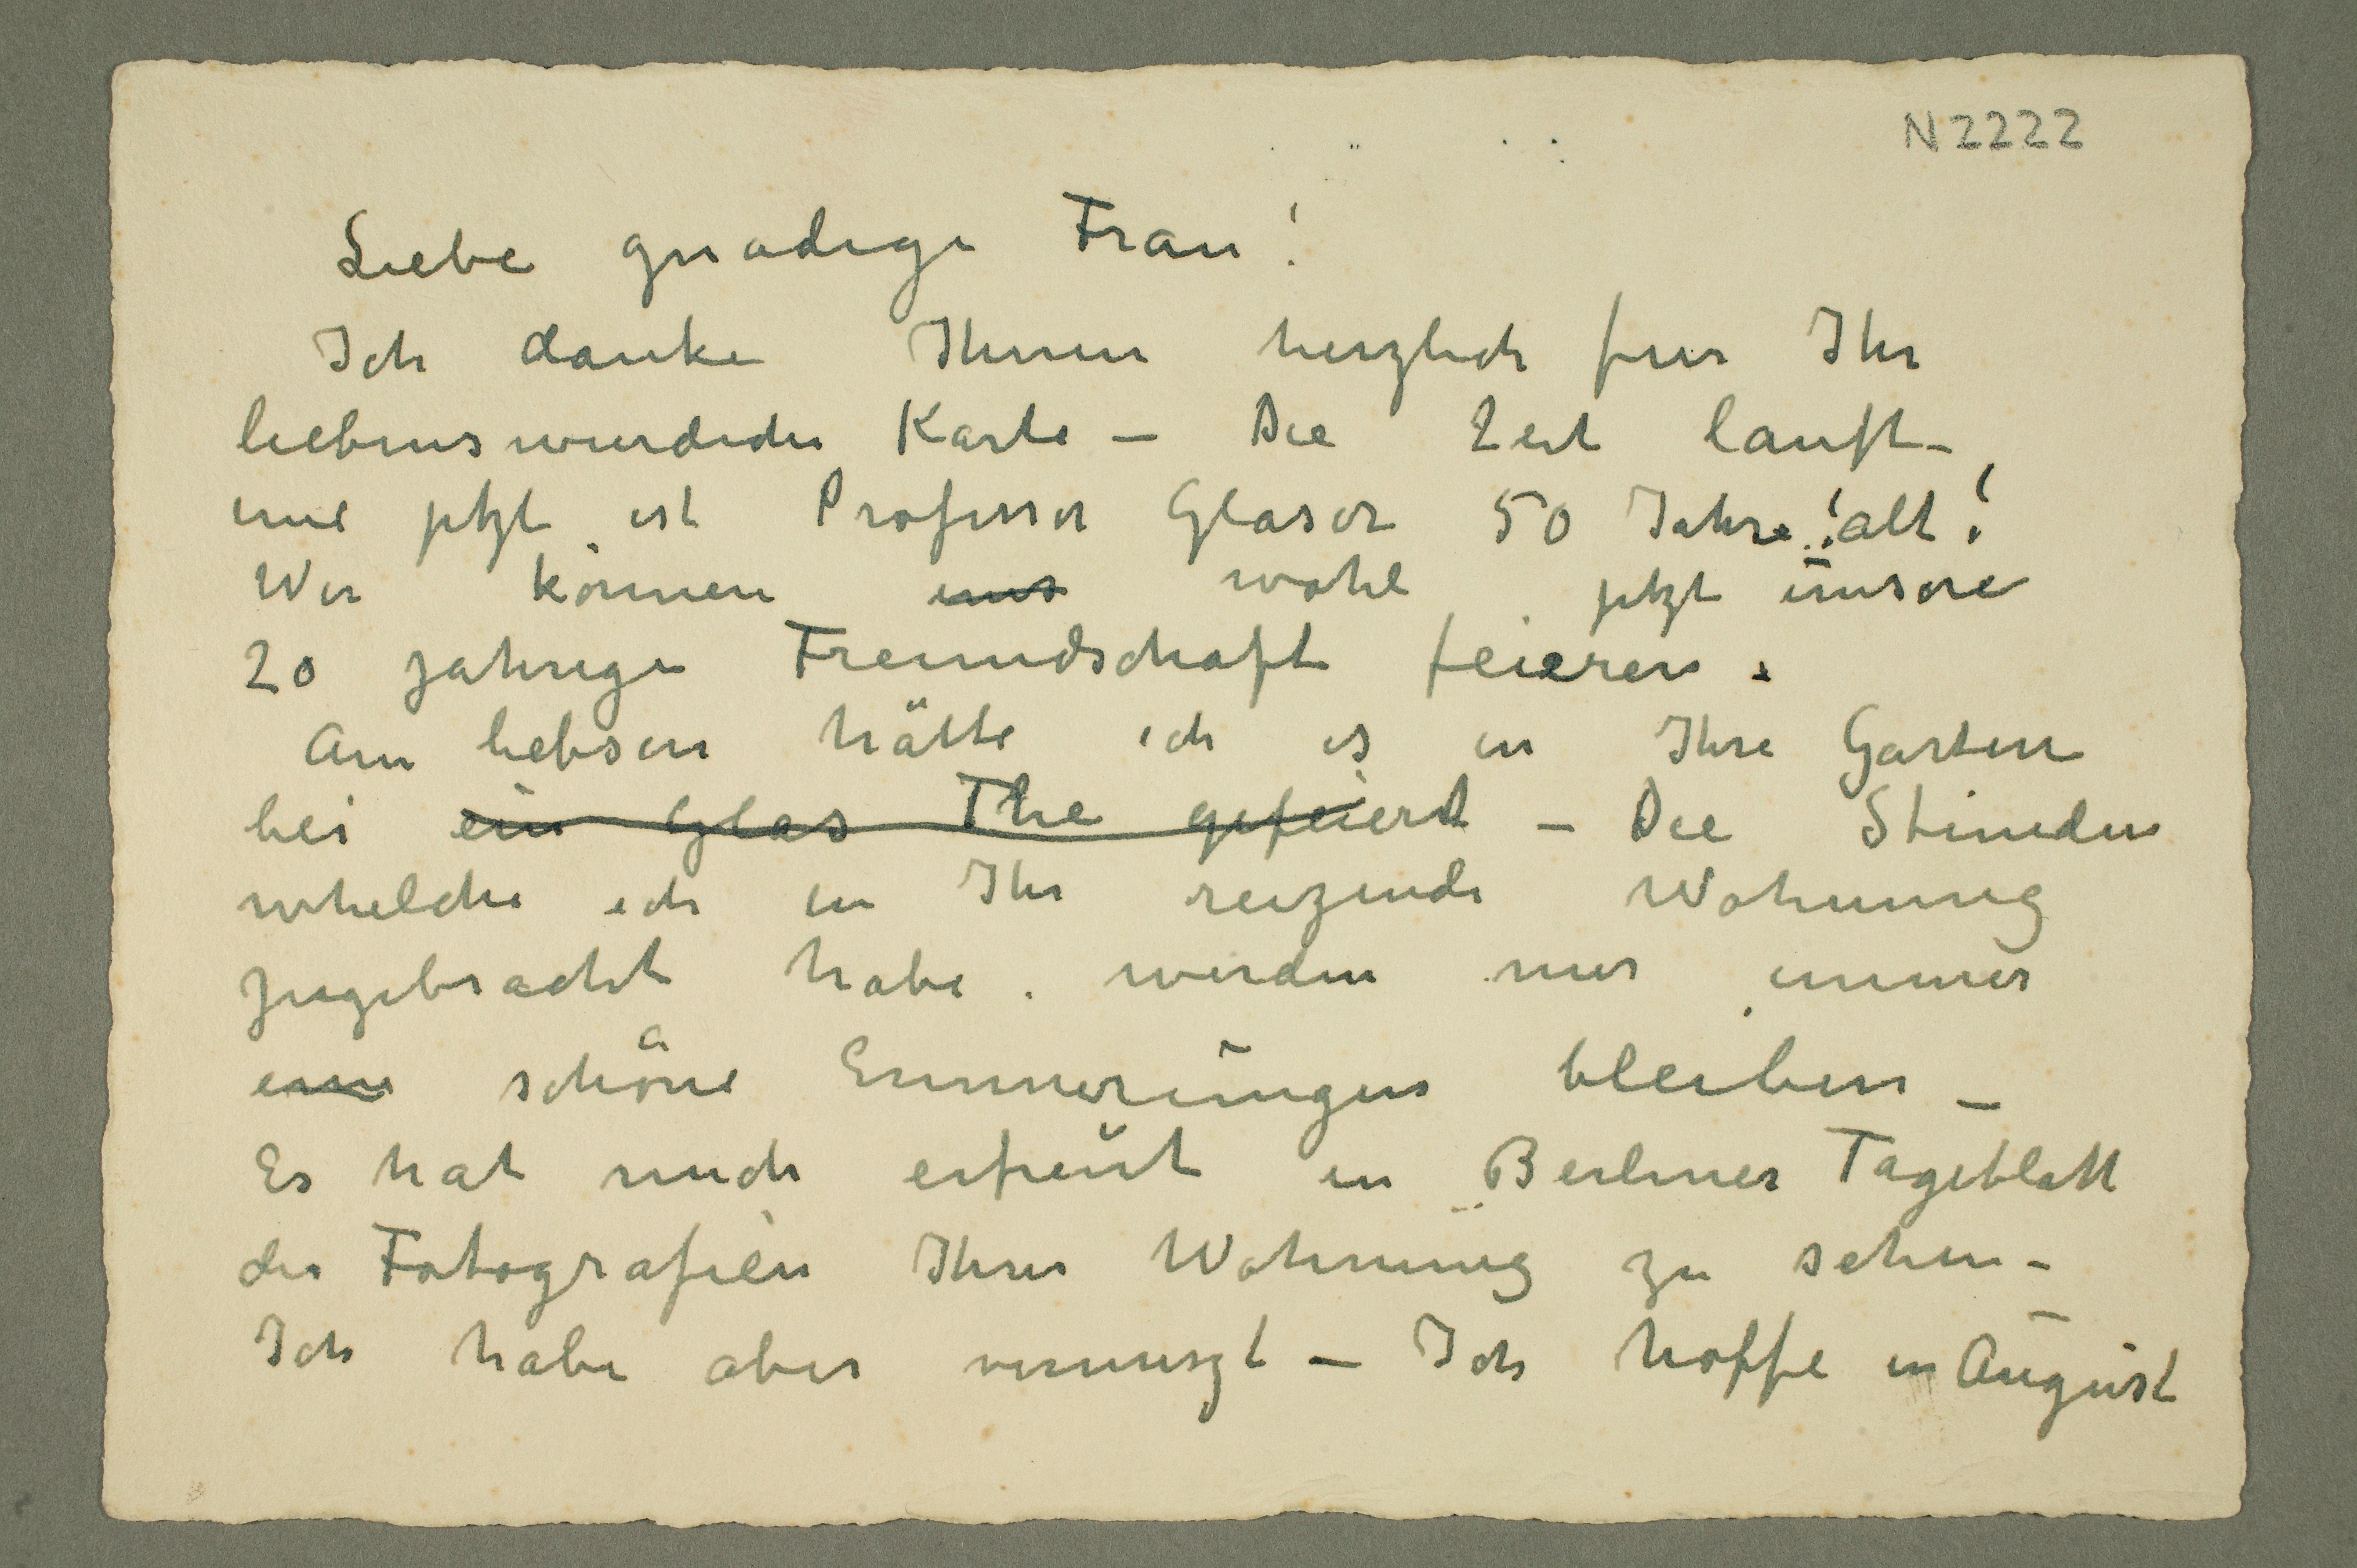 N 2222
Liebe gnadige Frau!
Ich danke Ihnen herzlich fur Ihr
liebenswurdiche Karte – Die Zeit lauft –
und jetzt ist Professor Glaser 50 Jahre! alt!
Wir können uns wohl jetzt unsere
20 jahrige Freundschaft feieren.
Am liebsen hätte ich es in Ihre Garten
bei ein Glas The gefeiert – Die Stunden
whelche ich in Ihr reizende Wohnung
zugebracht habe. werden mir immer
eine schöne Erinnerungen bleiben –
Es hat mich erfreut in Berliner Tageblatt
die Fotografien Ihrer Wohnung zu sehen –
Ich habe aber vermiszt – Ich hoffe in August